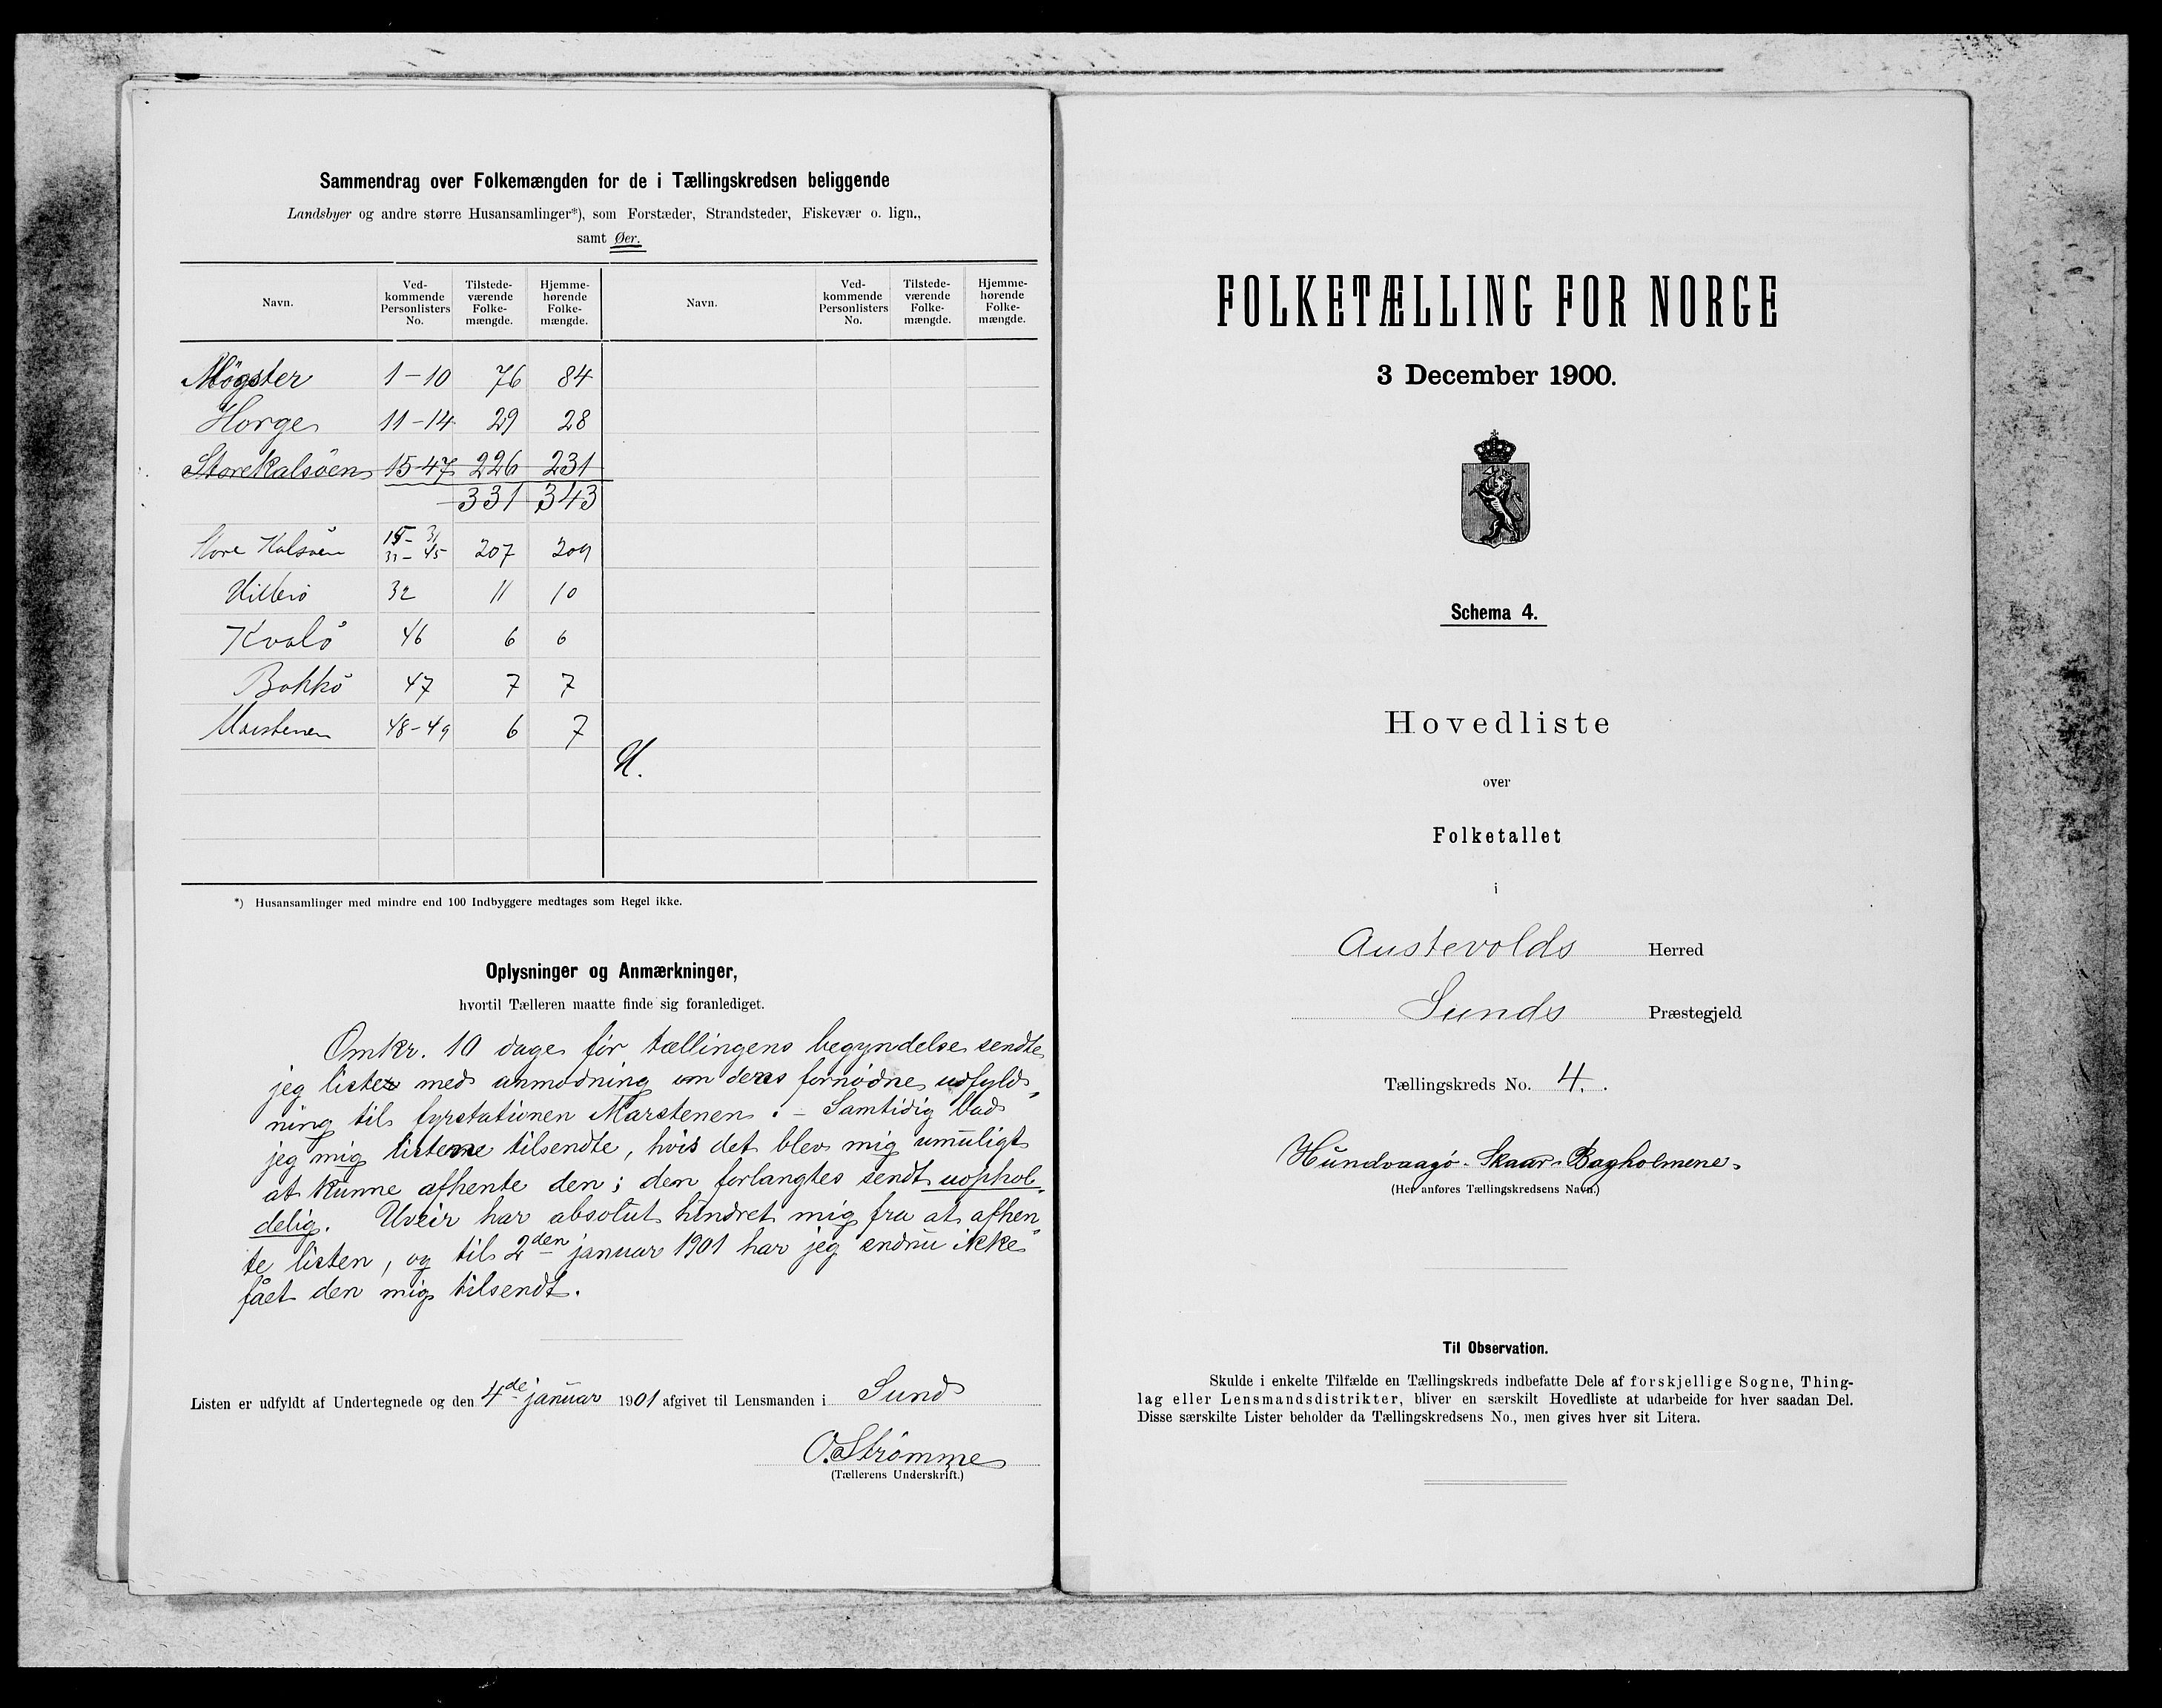 Sammendrag over Folkemængden for de i Tællingskredsen beliggende
Landsbyer og andre større Husansamlinger*), som Forstæder, Strandsteder, Fiskevær o. lign.,
samt Øer.
Navn. Ved-kommende Personlisters No. Tilstede-værende Folke-mængde. Hjemme-hørende Folke-mængde. Navn. Ved-kommende Personlisters No. Tilstede-værende Folke-mængde. Hjemme-hørende Folke-mængde.
Møgster 1-10 76 84
Horge 11-14 29 28
Storekalsöen 15-47 226 231
331 343
Store Kalsöen 15-31 33-45 207 209
Hillerö 32 11 10
Kvalö 46 6 6
Bokkö 47 7 7
Marstenen 48-49 6 7
*) Husansamlinger med mindre end 100 Indbyggere medtages som Regel ikke.
Oplysninger og Anmærkninger,
hvortil Tælleren maatte finde sig foranlediget.
Omkr. 10 dage før tællingens begyndelse sendte
jeg lister med anmodning om deres fornødne udfyld-
ning til fyrstationen Marstenen. – Samtidig bad
jeg mig listerne tilsendte, hvis det blev mig umuligt
at kunne afhente den; den forlangtes sendt uophol-
delig. Uveir har absolut hindret mig fra at afhen-
te listen, og til 2den januar 1901 har jeg endnu ikke
fået den mig tilsendt.
Listen er udfyldt af Undertegnede og den 4de januar 1901 afgivet til Lensmanden i Sund
O. Strømme
(Tællerens Underskrift.)
FOLKETÆLLING FOR NORGE
3 December 1900.
Schema 4.
Hovedliste
over
Folketallet
i
Austevolds Herred
Sunds Præstegjeld
Tællingskreds No. 4.
Hundvaagö-Skaar-Bagholmene.
(Her anføres Tællingskredsens Navn.)
Til Observation.
Skulde i enkelte Tilfælde en Tællingskreds indbefatte Dele af forskjellige Sogne, Thing-
lag eller Lensmandsdistrikter, bliver en særskilt Hovedliste at udarbeide for hver saadan Del.
Disse særskilte Lister beholder da Tællingskredsens No., men gives hver sit Litera.